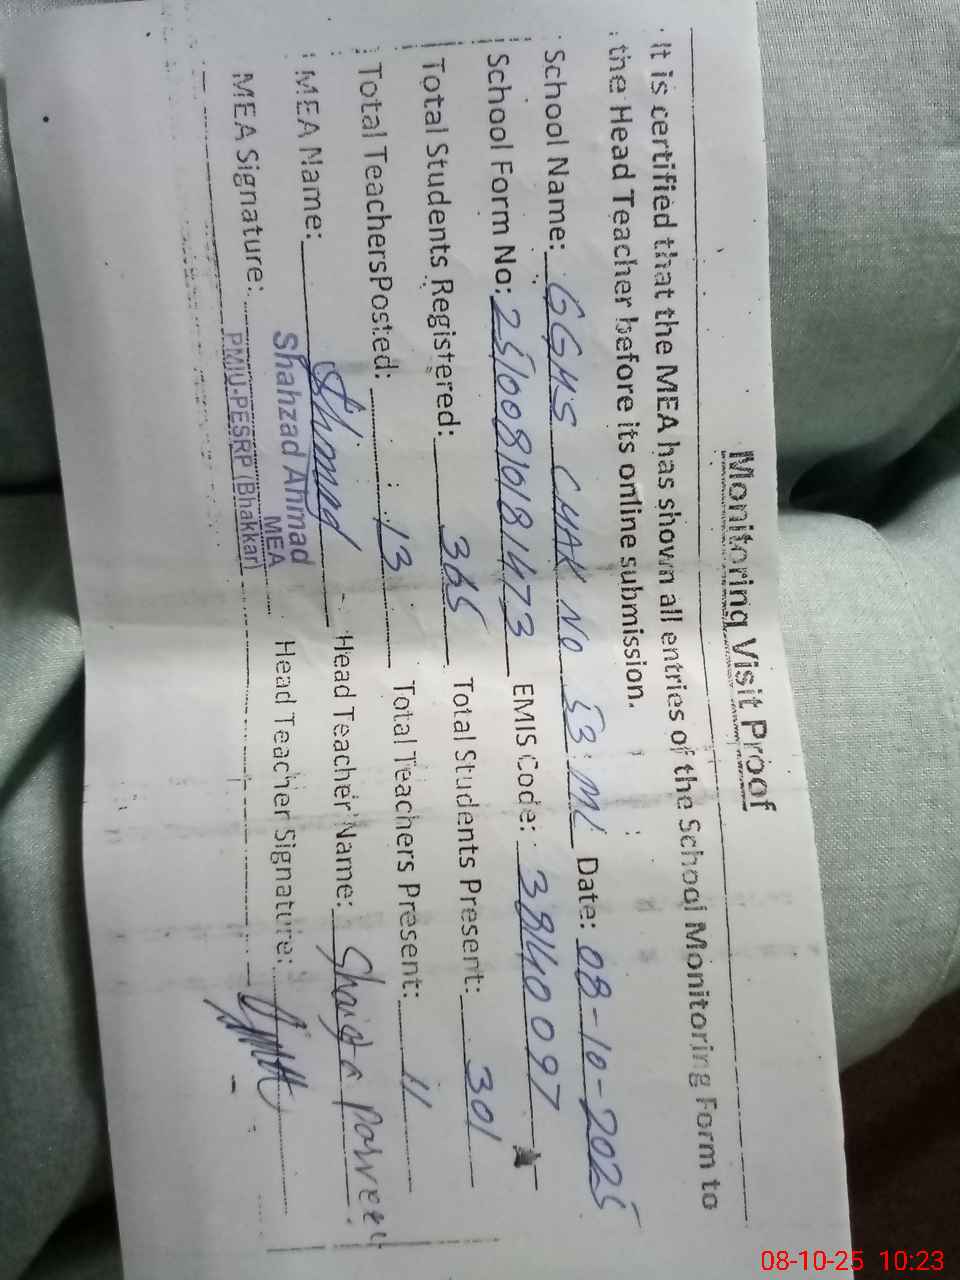 Monitoring Visit Proof
It is certified that the MEA has shown all entries of the School Monitoring Form to
the Head Teacher before its online submission.
School Name: GGHS CHAK NO 53 ML Date: 08-10-2025
School Form No: 25100810181473 EMIS Code: 38140097
Total Students Registered: 365 Total Students Present: 301
Total TeachersPosted: 13 Total Teachers Present: 11
MEA Name: Head Teacher Name: Parveen
Shahzad Ahmad
MEA
MEA Signature: PMIU-PESRP (Bhakkar) Head Teacher Signature:
08-10-25 10:23